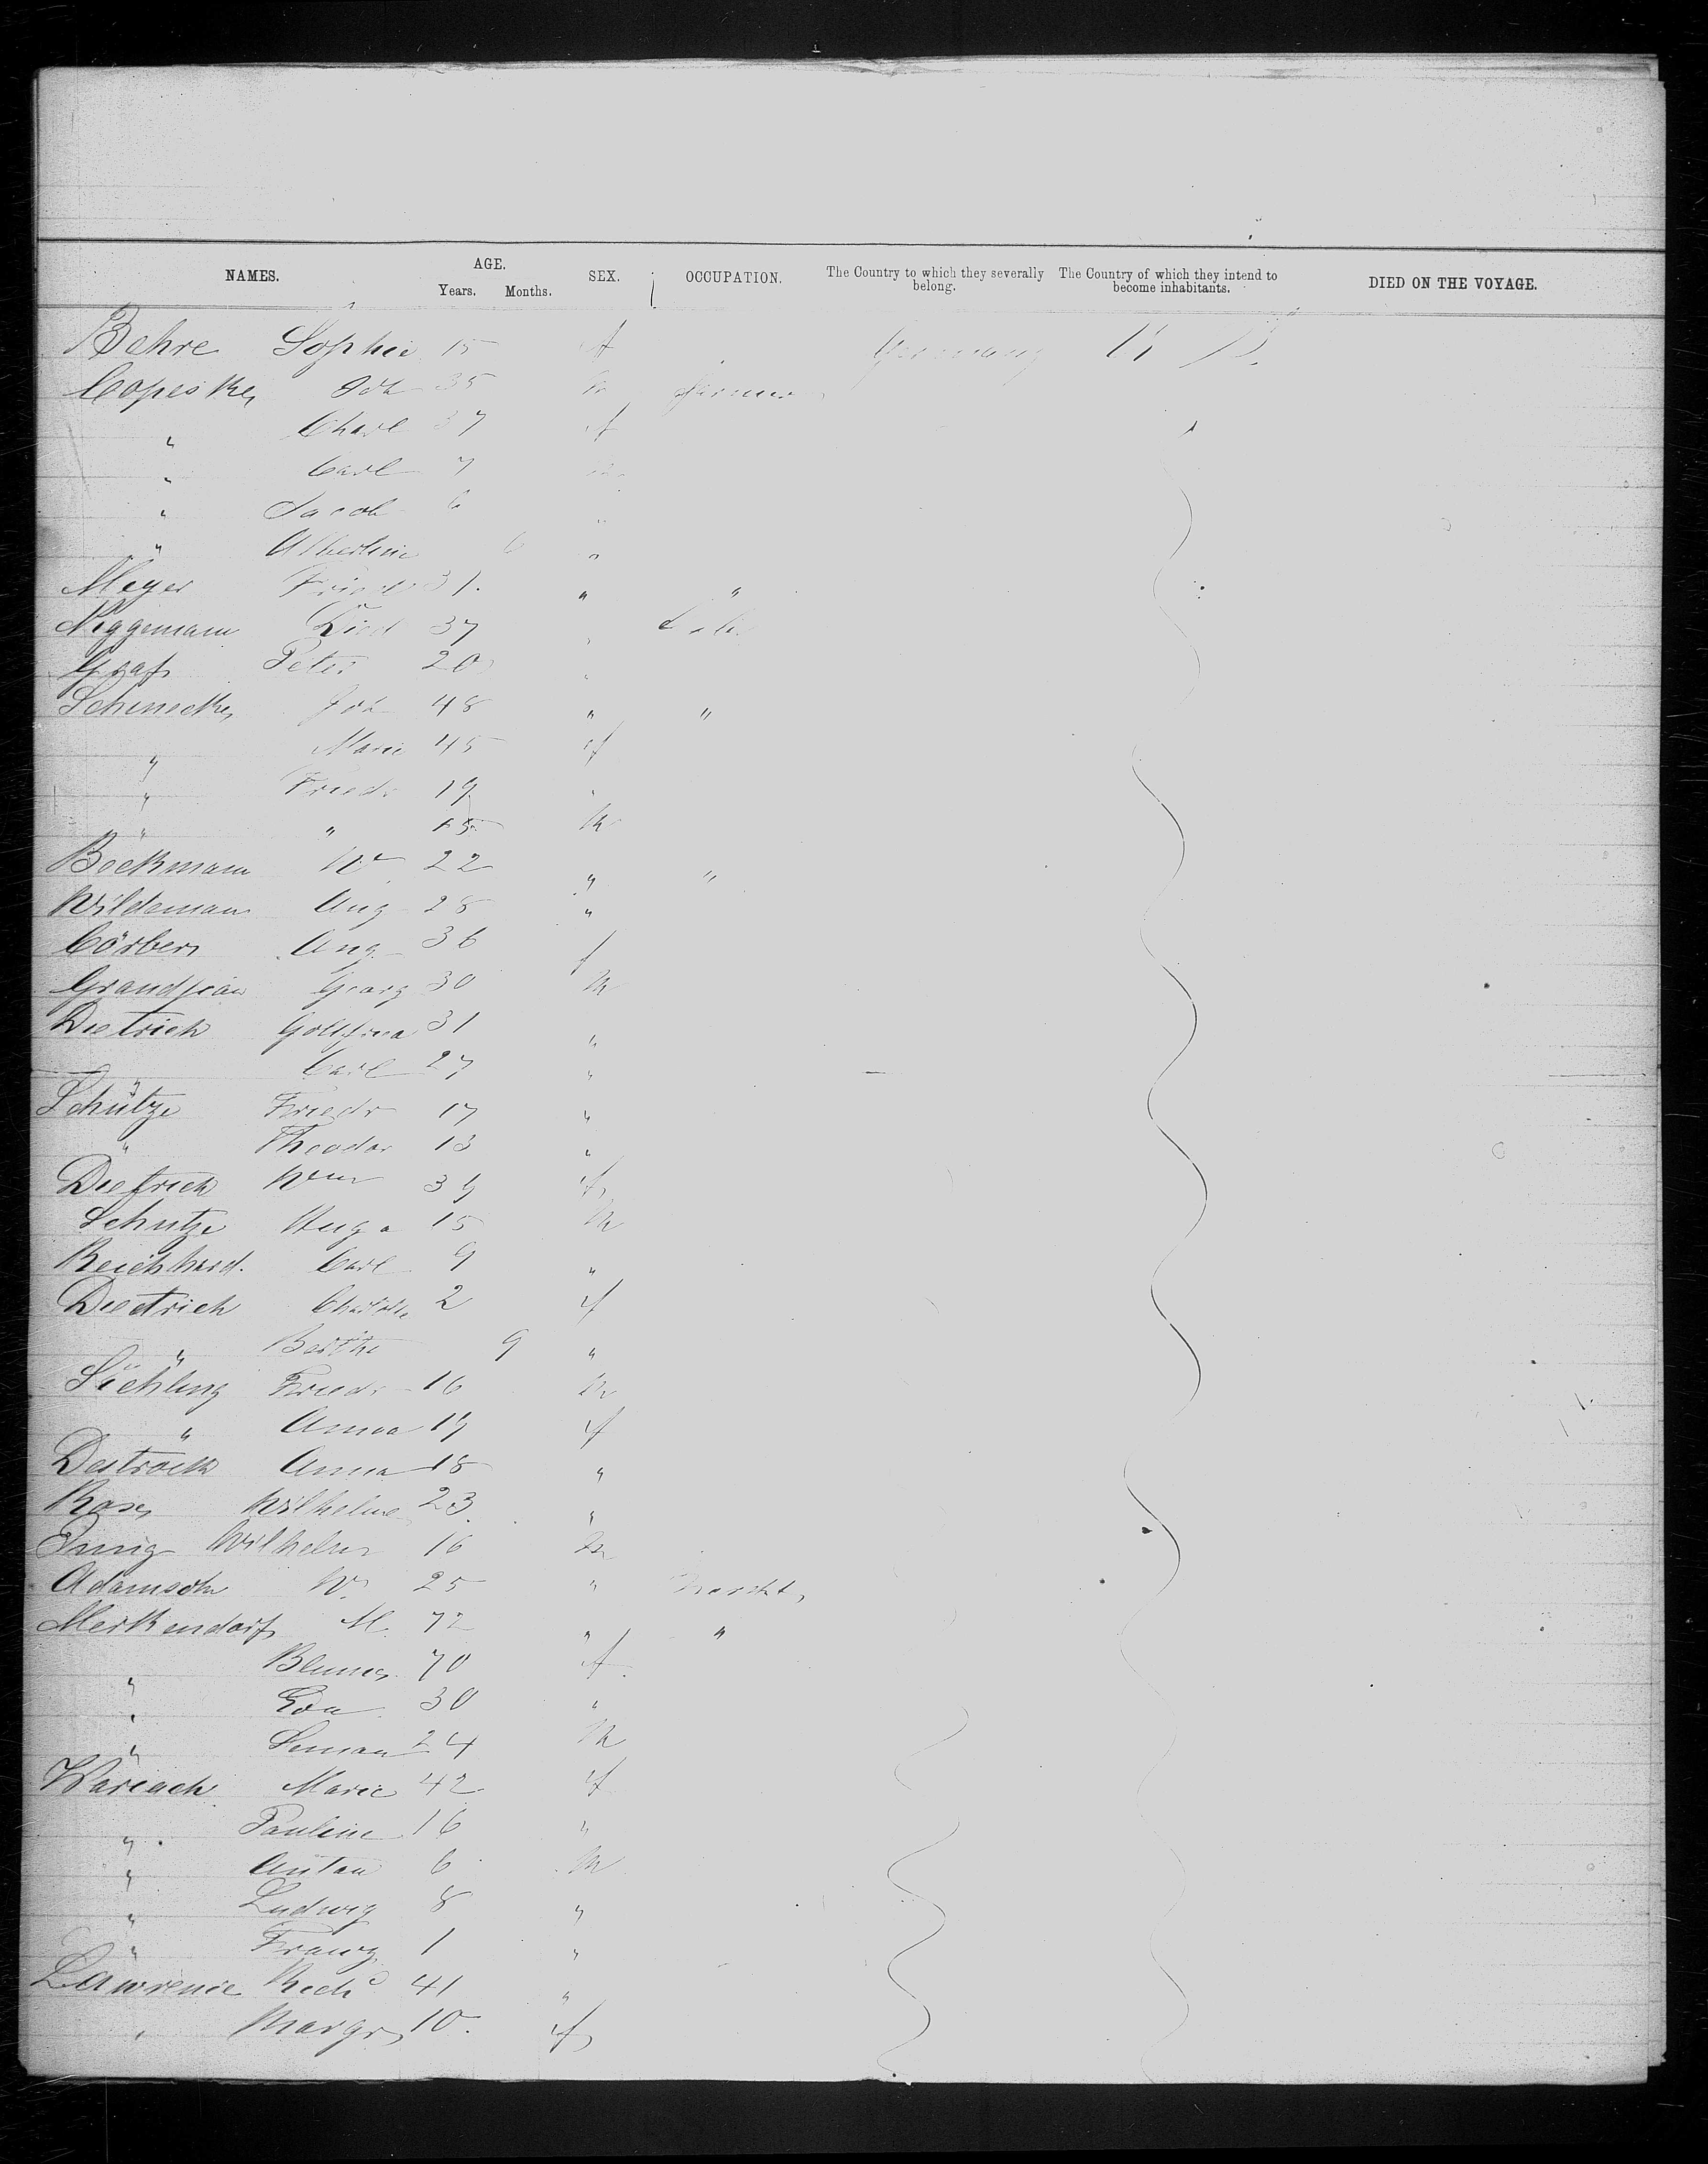 NAMES. AGE. Years. Months. SEX. OCCUPATION. The Country to which they severally belong. The Country of which they intend to become inhabitants. DIED ON THE VOYAGE.
Behre Sophie 15 f Germany U S.
Copeske Joh 35 m farmer
" Charl 37 f
" Carl 7 m
" Jacob 6 "
" Albertine 6 "
Meyer Friedr 31. " "
Niggemann Died 37 "
Graf Peter 20 "
Schinecke Joh 48 " "
" Marie 45 f
" Friedr 19 "
" " 15 m
Böckmann Wm 22 " "
Wildemann Aug 28 "
Cörber Aug. 36 f
Grandjean Georg 30 m
Dietrich 31 "
" Carl 27 "
Schütze Friedr 17 "
" Theodor 13 "
Dietrich 39 f
Schutze Hugo 15 m
Reichhard. Carl 9 "
Dietrich Charlotte 2 f
" Berthe 9 "
Sichling Friedr 16 m
" Anna 19 f
Anna 18 "
Rose Wilhelme 23. "
Jung Wilhelm 16 m
Adamsohn W. 25 "
Merkendorf M. 72 " "
" Blume 70 f
" 30 "
" 24 m
Wareach Marie 42 f
" Pauline 16 "
" Anton 6 m
" Ludwig 8 "
" Franz 1 "
Lawrence Richd 41 "
" Margr 10. f